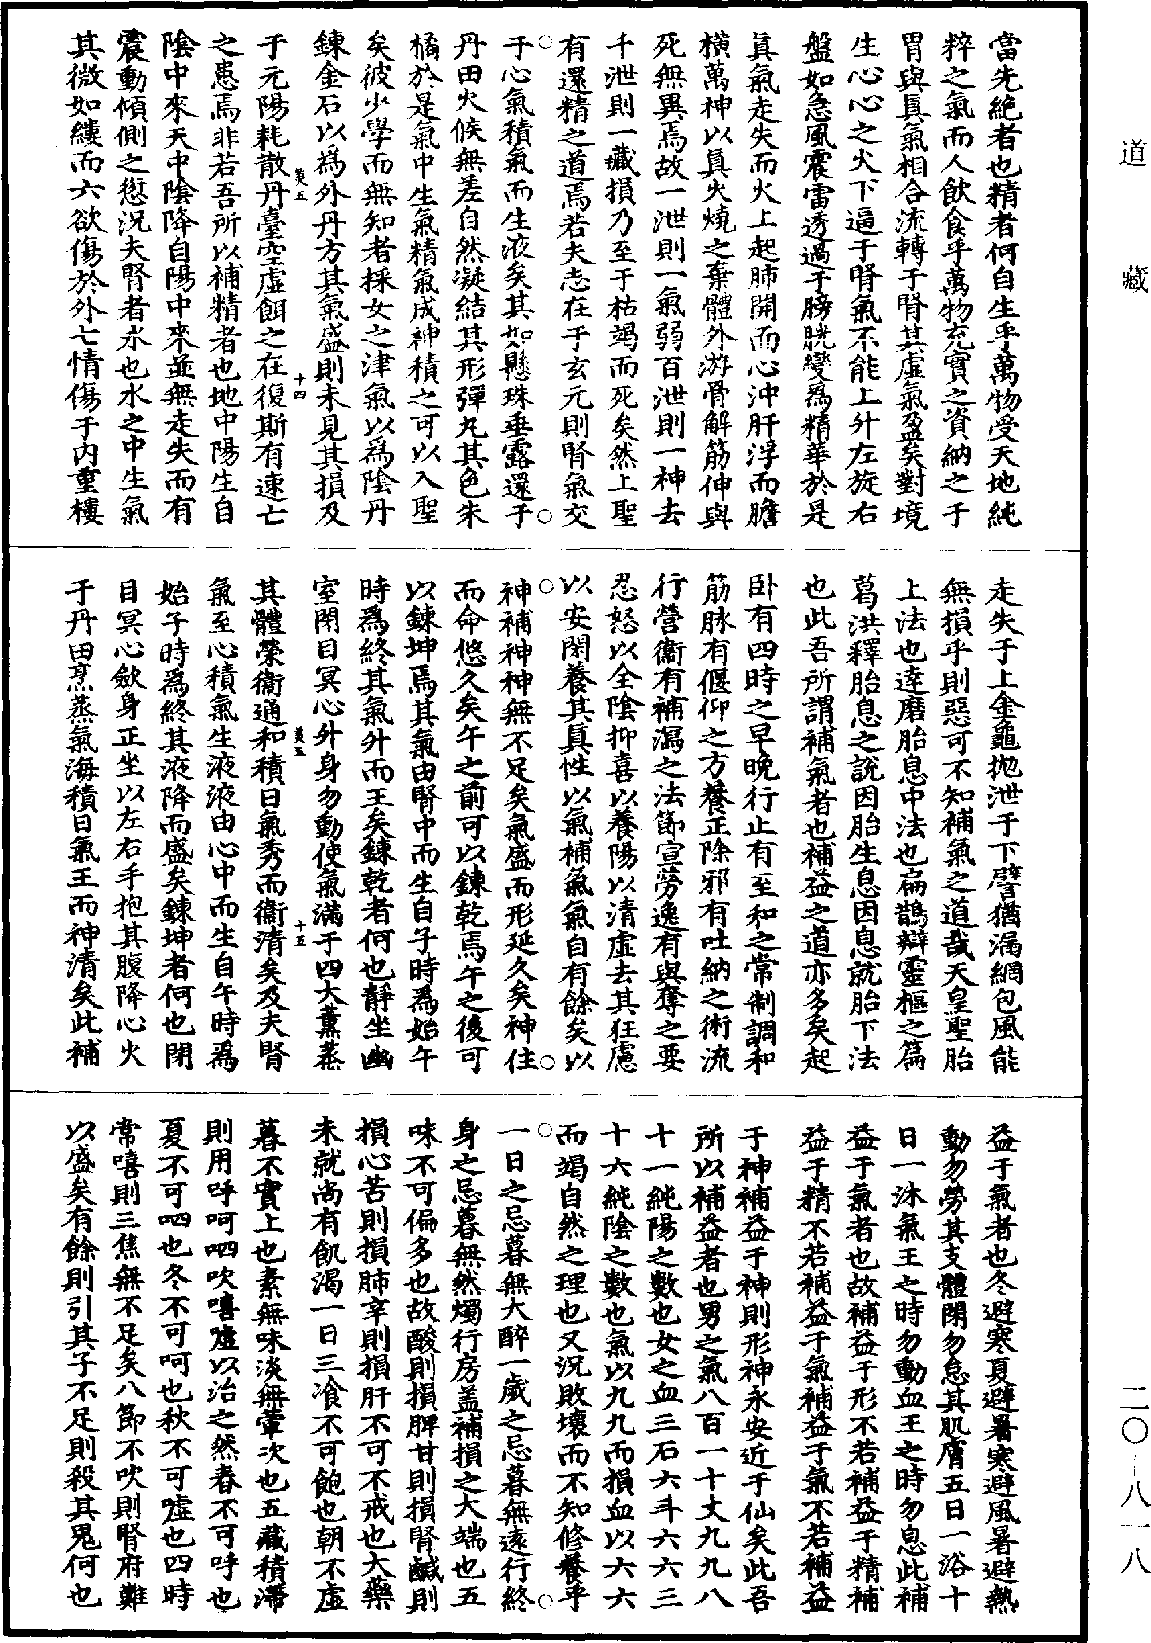 當先絶者也精者何自生乎萬物受天地純
粹之氣而人飲食乎萬物充實之資納之于
胃與真氣相合流轉于腎其虛氣盈矣對境
生心心之火下逼于腎氣不能上升左旋右
盤如急風震雷透過于膀胱變爲精華於是
真氣走失而火上起肺開而心沖肝浮而膽
橫萬神以真火燒之棄體外游骨解筋伸與
死無異焉故一泄則一氣弱百泄則一神去
千泄則一藏損乃至于枯竭而死矣然上聖
有還精之道焉若夫志在于玄元則腎氣交
于心氣積氣而生液矣其如懸珠垂露還于
丹田火候無差自然凝結其形彈丸其色朱
橘於是氣中生氣精氣成神積之可以入聖
矣彼少學而無知者採女之津氣以爲陰丹
鍊金石以爲外丹方其氣盛則未見其損及
于元陽耗散丹臺空虛餌之在復斯有速亡
之患焉非若吾所以補精者也地中陽生自
陰中來天中陰降自陽中來並無走失而有
震動傾側之愆況夫腎者水也水之中生氣
其微如縷而六欲傷於外七情傷于内重樓
走失于上金龜抛泄于下譬猶漏網包風能
無損乎則惡可不知補氣之道哉天皇聖胎
上法也達磨胎息中法也扁鵲辯靈樞之篇
葛洪釋胎息之説因胎生息因息就胎下法
也此吾所謂補氣者也補益之道亦多矣起
卧有四時之早晚行止有至和之常制調和
筋脉有偃仰之方養正除邪有吐納之術流
行營衞有補瀉之法節宣勞逸有與奪之要
忍怒以全陰抑喜以養陽以清虛去其狂慮
以安閑養其真性以氣補氣氣自有餘矣以
神補神神無不足矣氣盛而形延久矣神住
而命悠久矣午之前可以鍊乾焉午之後可
以鍊坤焉其氣由腎中而生自子時爲始午
時爲終其氣升而王矣鍊乾者何也靜坐幽
室閉目冥心升身勿動使氣滿于四大薰蒸
其體榮衞通和積日氣秀而衞清矣及夫腎
氣至心積氣生液液由心中而生自午時爲
始子時爲終其液降而盛矣鍊坤者何也閉
目冥心歛身正坐以左右手抱其腹降心火
于丹田烹蒸氣海積日氣王而神清矣此補
益于氣者也冬避寒夏避暑寒避風暑避熱
動勿勞其支體閑勿怠其肌膚五日一浴十
日一沐氣王之時勿動血王之時勿息此補
益于氣者也故補益于形不若補益于精補
益于精不若補益于氣補益于氣不若補益
于神補益于神則形神永安近于仙矣此吾
所以補益者也男之氣八百一十丈九九八
十一純陽之數也女之血三石六斗六六三
十六純陰之數也氣以九九而損血以六六
而竭自然之理也又況敗壞而不知修養乎
一日之忌暮無大醉一歲之忌暮無遠行終
身之忌暮無然燭行房盖補損之大端也五
味不可偏多也故酸則損脾甘則損腎鹹則
損心苦則損肺辛則損肝不可不戒也大藥
未就尚有飢渴一日三飡不可飽也朝不虛
暮不實上也素無味淡無葷次也五藏積滯
則用呼呵呬吹嘻噓以治之然春不可呼也
夏不可呬也冬不可呵也秋不可噓也四時
常嘻則三焦無不足矣八節不吹則腎府難
以盛矣有餘則引其子不足則殺其鬼何也
莢五
十四
莢五
十五
道藏
二〇-八一八